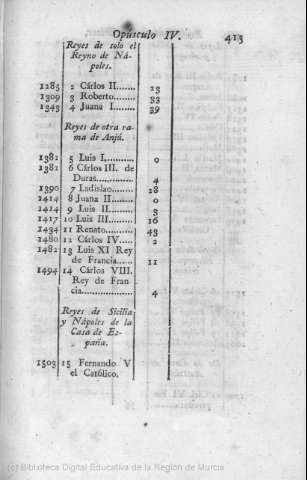 Opusculo IV. 413
Reyes de solo el
Reyno de Ná-
poles.
1285 2 Cárlos II....... 23
1309 3 Roberto......... 33
1343 4 Juana I......... 39
Reyes de otra ra-
ma de Anjú.
1382 5 Luis I........... 0
1382 6 Cárlos III. de
Duras............... 4
1390 7 Ladislao......... 28
1414 8 Juana II......... 0
1414 9 Luis II.......... 3
1417 10 Luis III......... 16
1434 11 Renato.......... 43
1480 11 Cárlos IV..... 2
1482 13 Luis XI Rey
de Francia...... 11
1494 14 Cárlos VIII.
Rey de Fran
cia.................. 4
Reyes de Sicilia
y Nápoles de la
Casa de Es-
paña.
1503 15 Fernando V
el Católico.
(c) Biblioteca Digital Educativa de la Región de Murcia